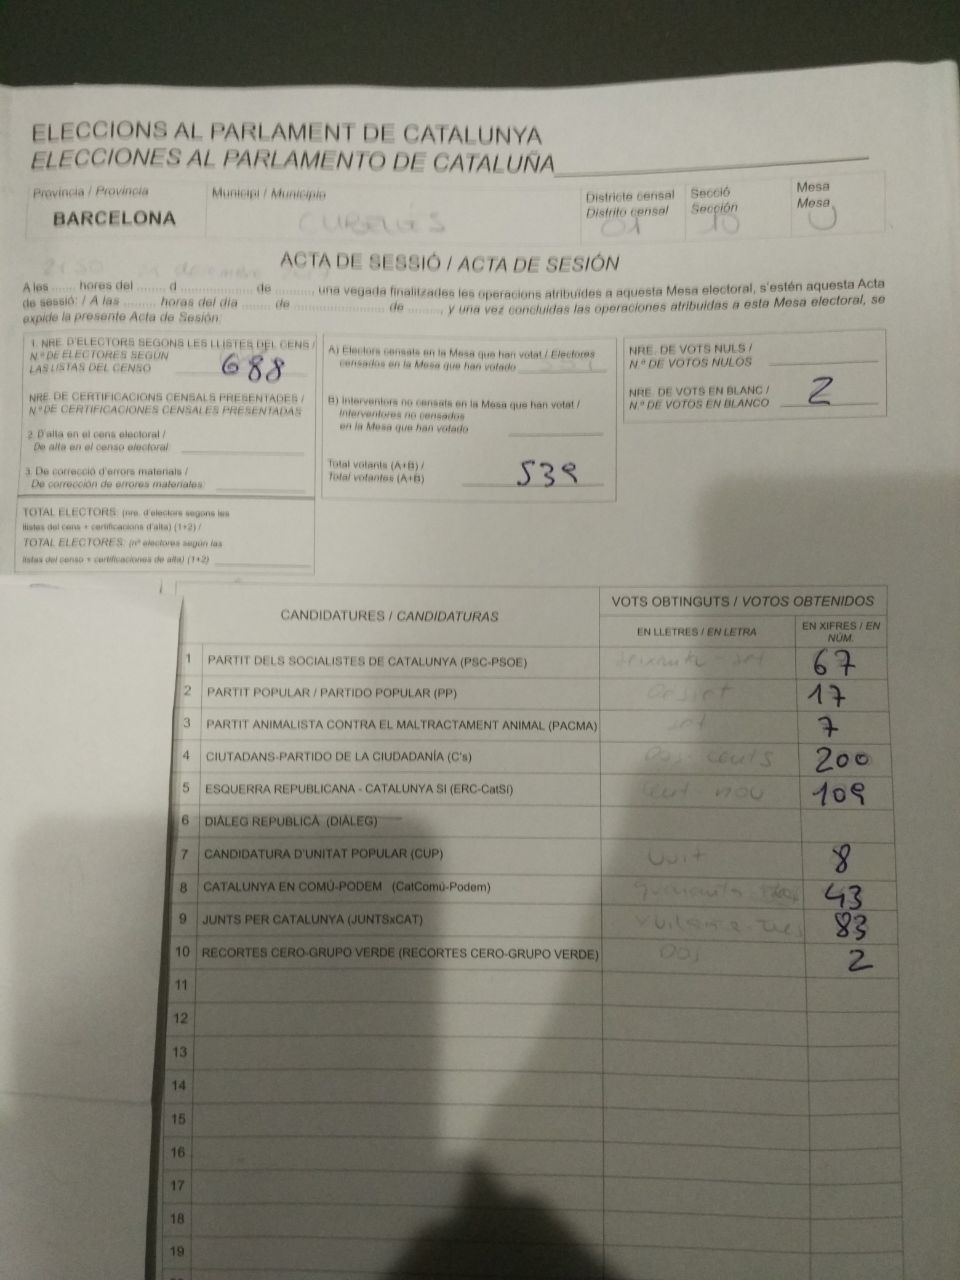 ELECCIONS AL PARLAMENT DE CATALUNYA
ELECCIONES AL PARLAMENTO DE CATALUÑA
Província / Provincia
BARCELONA
Municipi / Municipio
CUBELLES
Districte censal
Distrito censal
01
Secció
Sección
10
Mesa
Mesa
U
ACTA DE SESSIÓ / ACTA DE SESIÓN
A les ...... hores del ....... d ...................... de .........., una vegada finalitzades les operacions atribuïdes a aquesta Mesa electoral, s'estén aquesta Acta
de sessió: / A las ......... horas del día ...... de ........................ de ........, y una vez concluidas las operaciones atribuidas a esta Mesa electoral, se
expide la presente Acta de Sesión:
1. NRE. D'ELECTORS SEGONS LES LLISTES DEL CENS /
N.º DE ELECTORES SEGÚN
LAS LISTAS DEL CENSO 688
NRE. DE CERTIFICACIONS CENSALS PRESENTADES /
N.º DE CERTIFICACIONES CENSALES PRESENTADAS
2. D'alta en el cens electoral /
De alta en el censo electoral:
3. De correcció d'errors materials /
De corrección de errores materiales:
TOTAL ELECTORS: (nre. d'electors segons les
llistes del cens + certificacions d'alta) (1+2) /
TOTAL ELECTORES: (nº electores según las
listas del censo + certificaciones de alta) (1+2)
A) Electors censats en la Mesa que han votat / Electores
censados en la Mesa que han votado
B) Interventors no censats en la Mesa que han votat /
Interventores no censados
en la Mesa que han votado
Total votants (A+B) /
Total votantes (A+B) 539
NRE. DE VOTS NULS /
N.º DE VOTOS NULOS
NRE. DE VOTS EN BLANC /
N.º DE VOTOS EN BLANCO 2
CANDIDATURES / CANDIDATURAS
VOTS OBTINGUTS / VOTOS OBTENIDOS
EN LLETRES / EN LETRA
EN XIFRES / EN
NÚM.
1 PARTIT DELS SOCIALISTES DE CATALUNYA (PSC-PSOE) seixanta-set 67
2 PARTIT POPULAR / PARTIDO POPULAR (PP) disset 17
3 PARTIT ANIMALISTA CONTRA EL MALTRACTAMENT ANIMAL (PACMA) set 7
4 CIUTADANS-PARTIDO DE LA CIUDADANÍA (C's) Dos-cents 200
5 ESQUERRA REPUBLICANA - CATALUNYA SÍ (ERC-CatSí) Cent nou 109
6 DIÀLEG REPUBLICÀ (DIÀLEG)
7 CANDIDATURA D'UNITAT POPULAR (CUP) Vuit 8
8 CATALUNYA EN COMÚ-PODEM (CatComú-Podem) 43
9 JUNTS PER CATALUNYA (JUNTSxCAT) vuitanta-tres 83
10 RECORTES CERO-GRUPO VERDE (RECORTES CERO-GRUPO VERDE) Dos 2
11
12
13
14
15
16
17
18
19